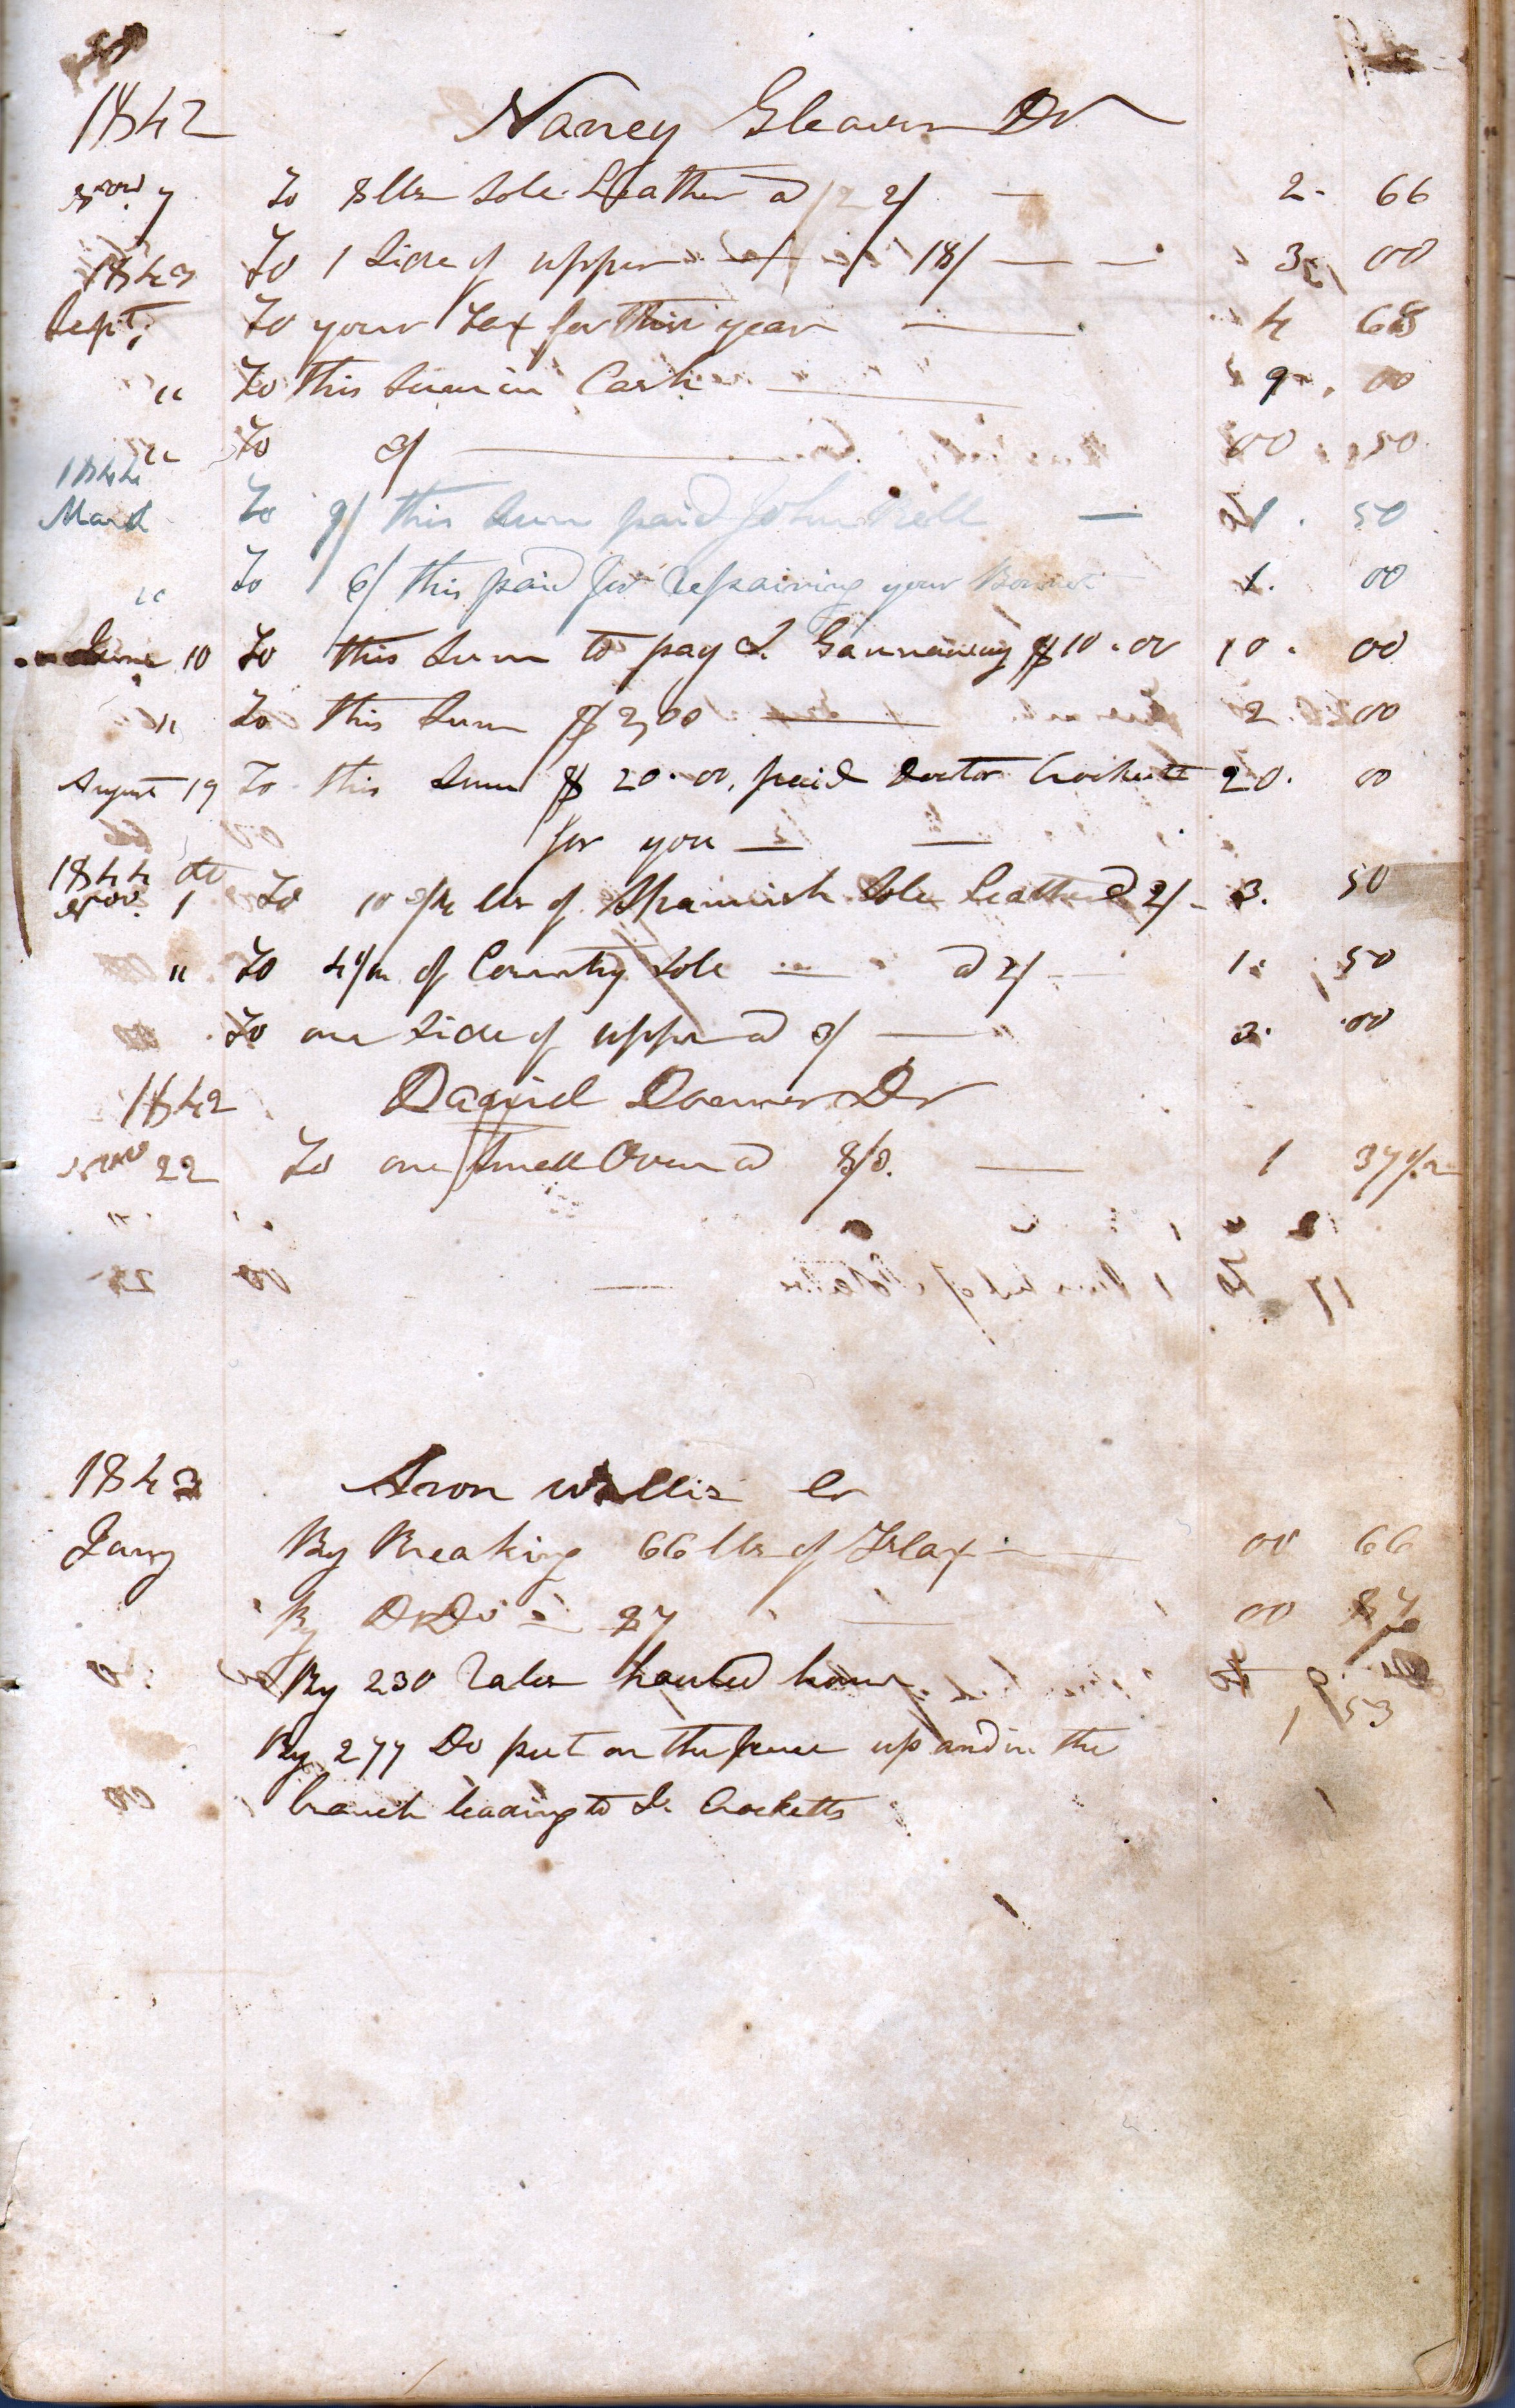 50
1842 Nancy Gleaves Dr
Nov. 7 To 8 lbs Sole Leather a 2/ — 2. 66
1843 To 1 Side of upper 18/ — — 3. 00
Sept. To your Tax for this year — 4 68
" To this Sum in Cash — 9. 00
" To 3/ — 00 50
1844
March To 9/ this Sum paid John Bell — 1. 50
" To 6/ this paid for Repairing your Bonnet 1. 00
June 10 To this Sum to pay Gannaway $10.00 10. 00
" To this Sum $ 2,00 — 2 00
August 19 To this Sum $ 20.00, paid Doctor Crockett 20. 00
for you — —
1844
Nov. 1 To 10 3/4 lbs of Spanish Sole Leather 2/ - 3. 50
" To 4 1/2 of Country Sole — a 2/ 1. 50
To one Side of upper a — 3. 00
1842 Daniel Dr
Nov 22 To one Small Oven a 8/3. — 1 37 1/2
1842 Aron Wallis Cr
Jany By Breaking 66 lbs of Flax — 00 66
By Do Do — 87 — 00 87
By 230 Rales hauled home
1 53
By 277 Do put on the fence up and in the
branch leading to Crocketts